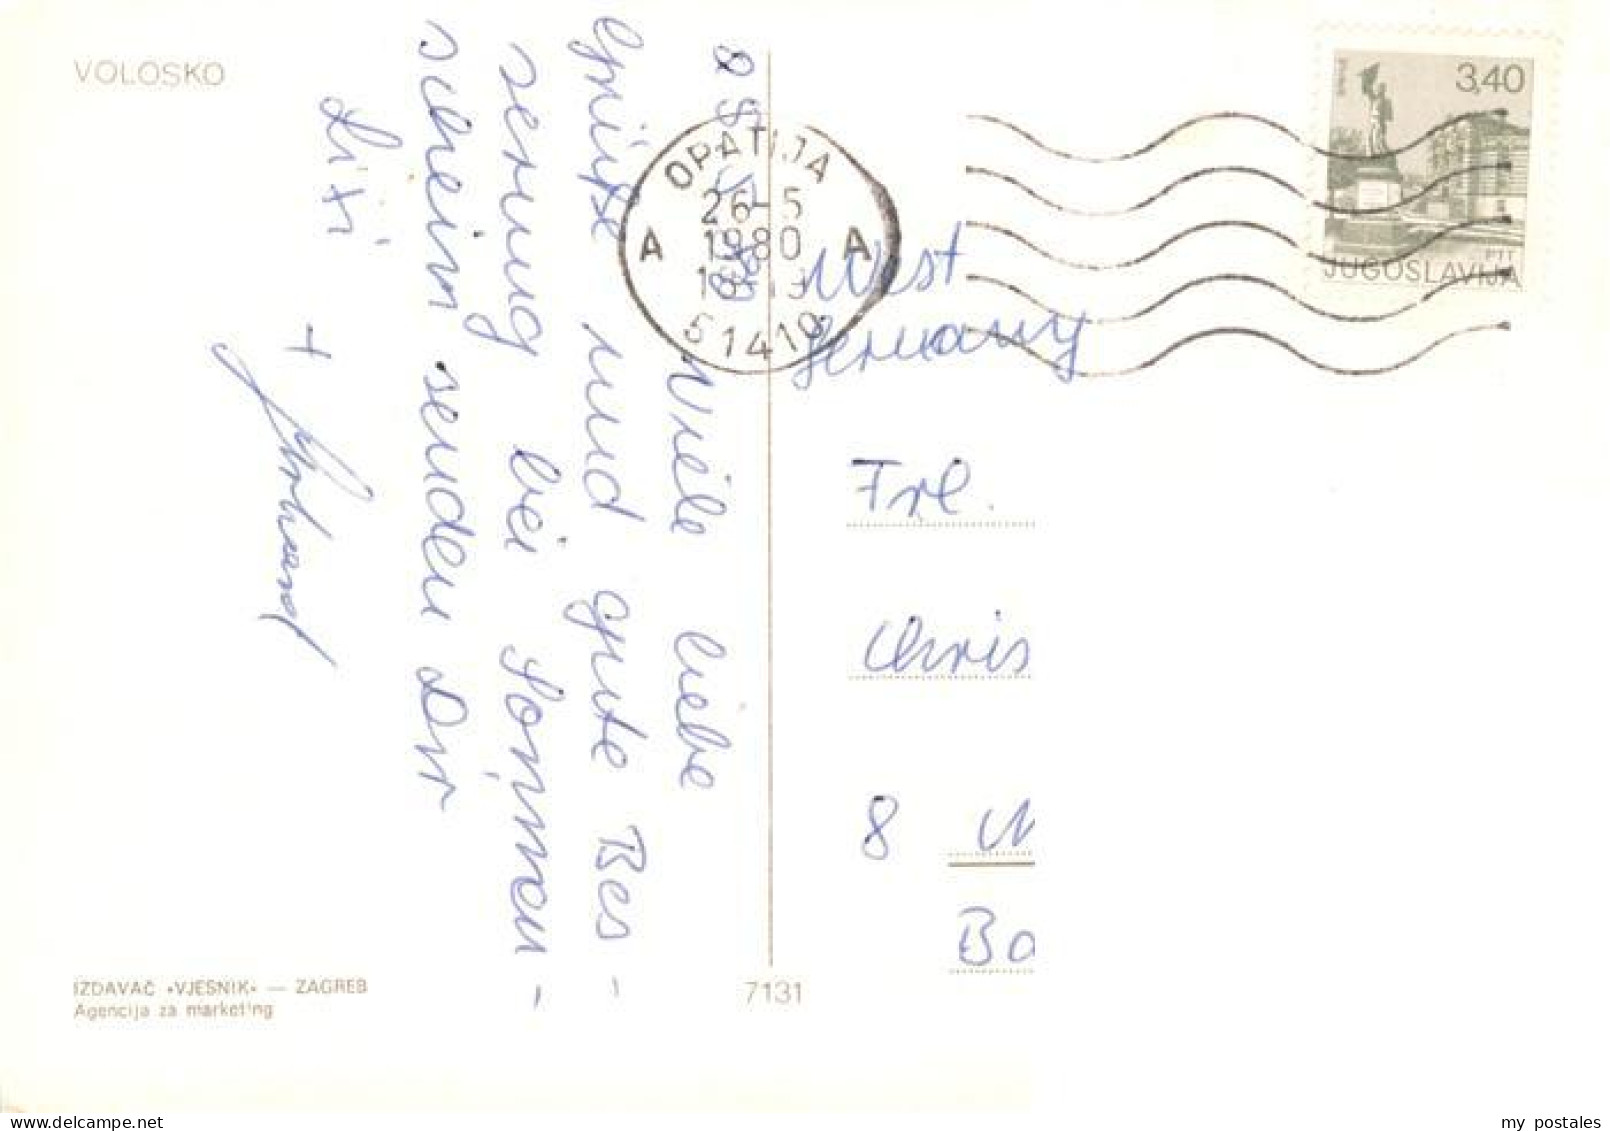 VOLOSKO
Viele liebe
Grüße und gute Bes-
serung bei Sonnen-
schein senden Dir
Lixi
+
OPATIJA
26-5
1980
A A
51410
3,40
PTT
JUGOSLAVIJA
West
Germany
Frl.
Chris
8 M
Ba
IZDAVAČ »VJESNIK« — ZAGREB
Agencija za marketing
7131
www.delcampe.net
my_postales